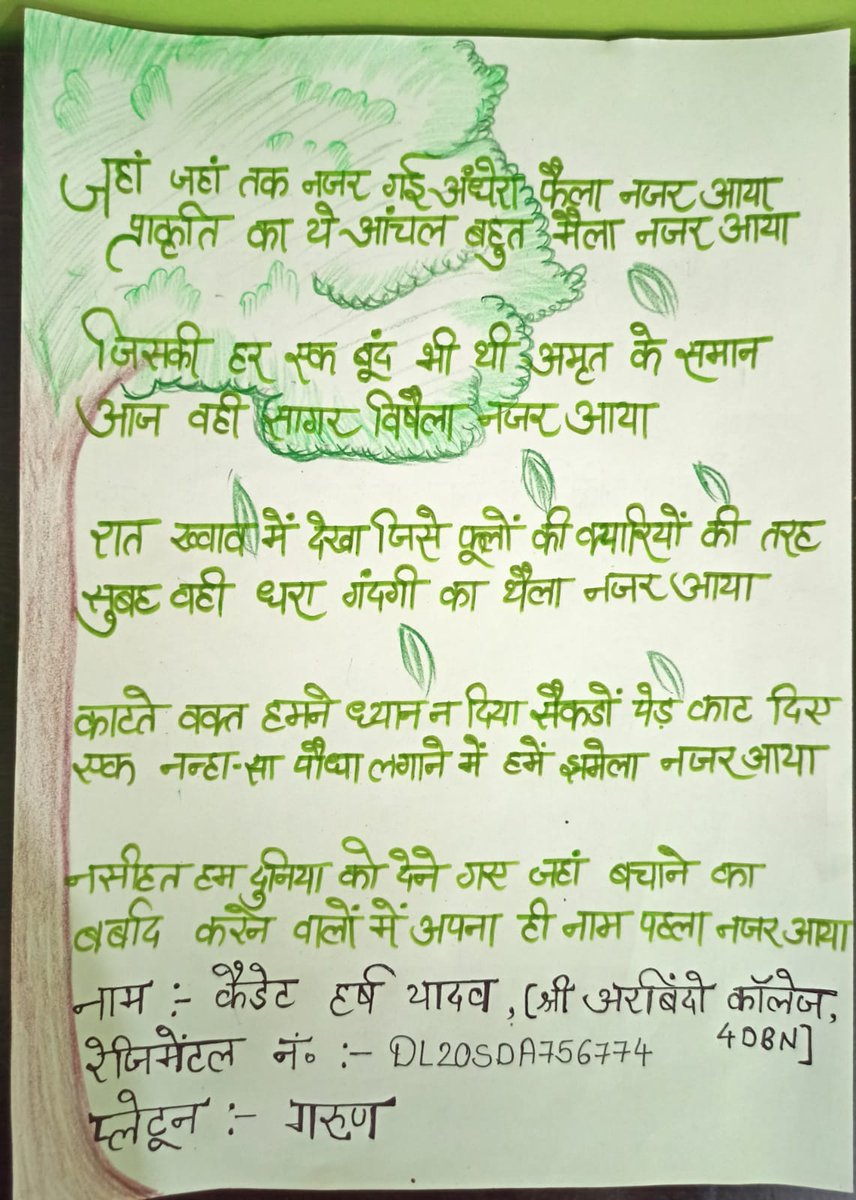 जहां जहां तक नजर गई अंधेरा फैला नजर आया
प्राकृति का ये आंचल बहुत मैला नजर आया
जिसकी हर एक बूंद भी थी अमृत के समान
आज वही सागर विषैला नजर आया
रात ख्वाब में देखा जिसे फूलों की क्यारियों की तरह
सुबह वही धरा गंदगी का थैला नजर आया
काटते वक्त हमने ध्यान न दिया सैकडों पेड़ काट दिए
एक नन्हा-सा पौधा लगाने में हमें झमेला नजर आया
नसीहत हम दुनिया को देने गए जहां बचाने का
बर्बाद करने वालों में अपना ही नाम पहला नजर आया
नाम :- कैडेट हर्ष यादव, [श्री अरबिंदो कॉलेज,
4DBN]
रेजिमेंटल नं० :- DL20SDA756774
प्लेटून :- गरुण